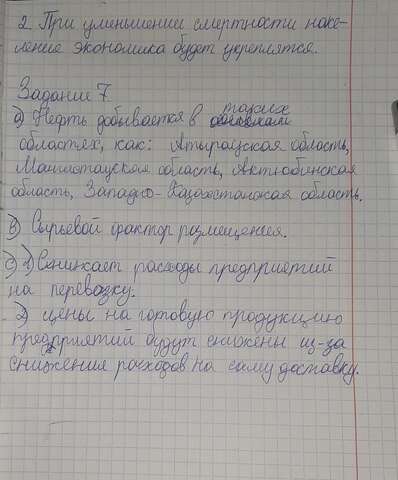 2. При уменьшении смертности насе-
ление экономика будет укреплятся.
Задание 7
а) Нефть добывается в таких
областях, как: Атырауская область,
Мангистауская область, Актюбинская
область, Западно-Казахстанская область.
в) Сырьевой фактор размещения.
с) 1) Снижает расходы предприятий
на перевозку.
2) цены на готовую продукцию
предприятий будут снижены из-за
снижения расходов на саму доставку.